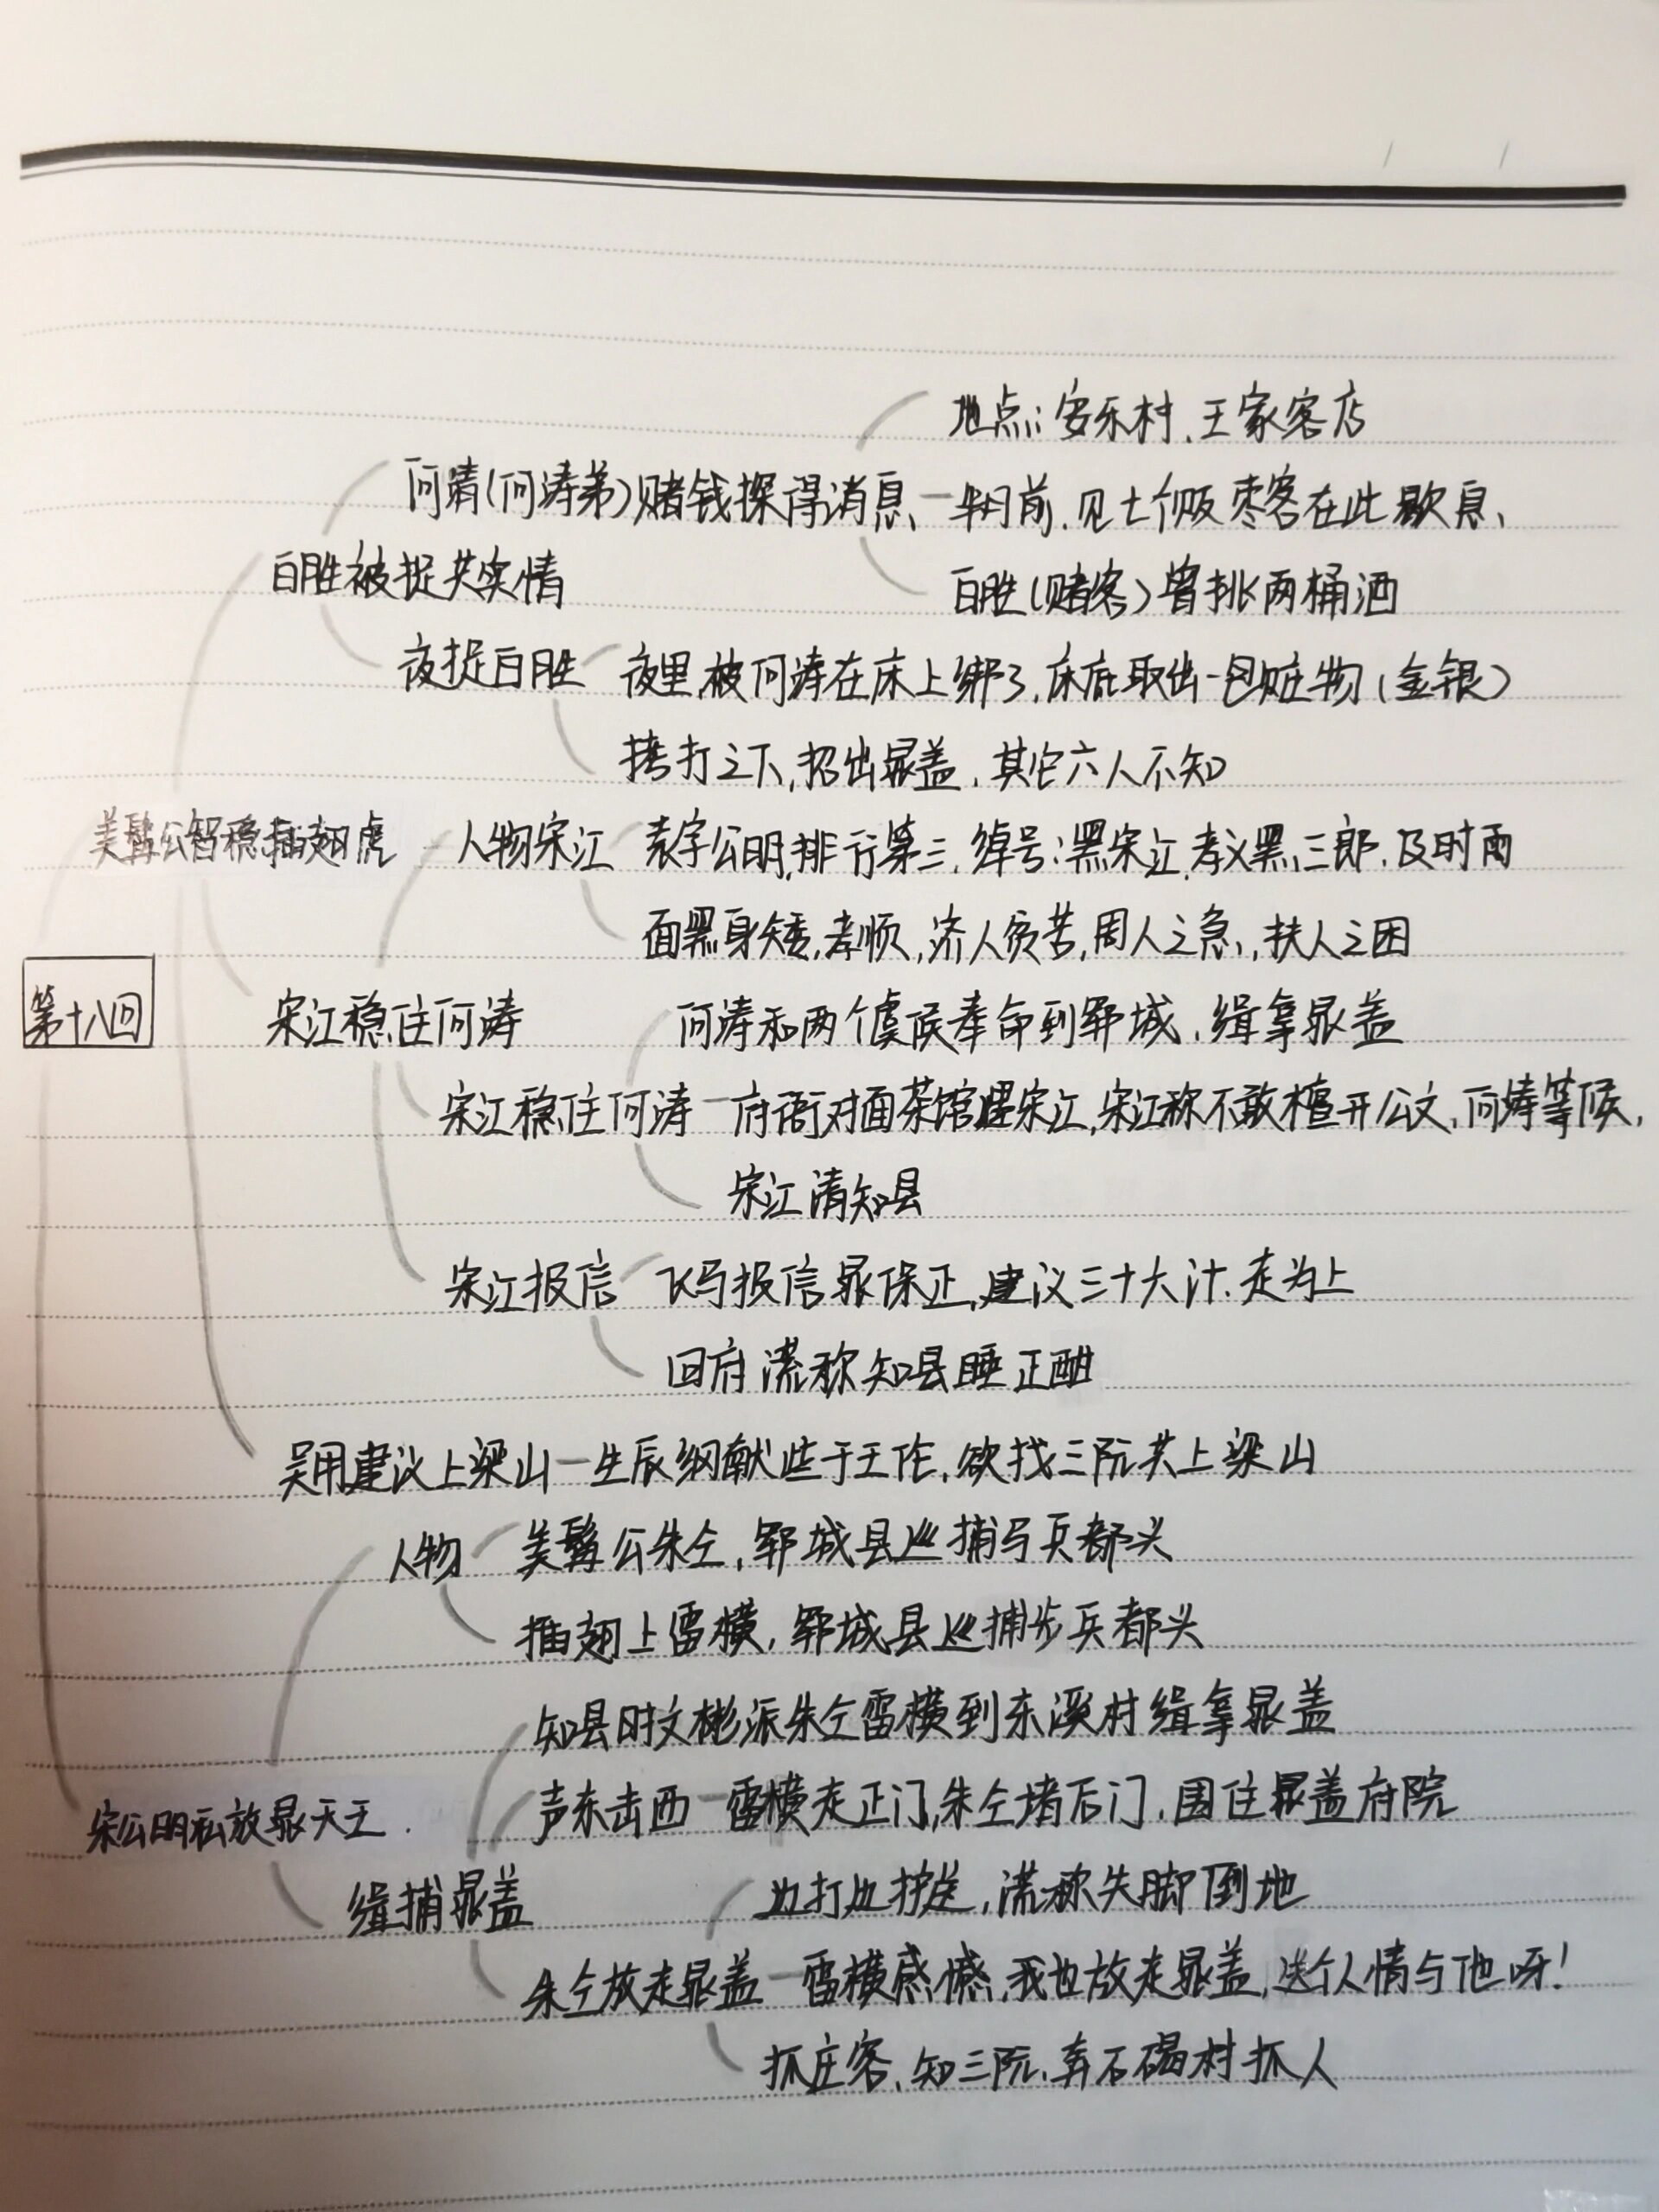 地点:安乐村、王家客店
何清(何涛弟)赌钱探得消息、半月前、见七个贩枣客在此歇息、
白胜被捉共实情
白胜(赌客)曾挑两桶酒
夜捉白胜 夜里被何涛在床上绑了,床底取出一包赃物(金银)
拷打之下,招出晁盖、其它六人不知
美髯公智稳插翅虎 人物宋江 表字公明,排行第三,绰号:黑宋江,孝义黑三郎,及时雨
面黑身矮,孝顺,济人贫苦,周人之急,扶人之困
第十八回
宋江稳住何涛 何涛和两个虞候奉命到郓城、缉拿晁盖
宋江稳住何涛 府衙对面茶馆遇宋江,宋江称不敢擅开公文,何涛等候,
宋江请知县
宋江报信 飞马报信晁保正,建议三十六计、走为上
回府 谎称知县睡正酣
吴用建议上梁山 生辰纲献些于王伦,欲找三阮共上梁山
人物 美髯公朱仝,郓城县巡捕马兵都头
插翅上雷横,郓城县巡捕步兵都头
知县时文彬派朱仝雷横到东溪村缉拿晁盖
声东击西 雷横走正门,朱仝堵后门,围住晁盖府院
宋公明私放晁天王
缉捕晁盖 边打边护送,谎称失脚倒地
朱仝放走晁盖 雷横感憾,我也放走晁盖,送个人情与他呀!
抓庄客、知三阮、奔石碣村抓人